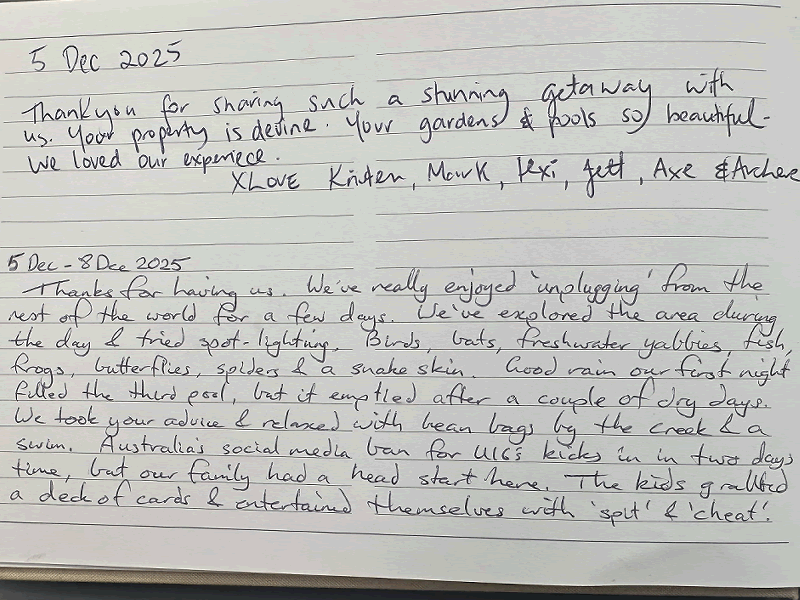 5 Dec 2025
Thankyou for sharing such a stunning getaway with
us. Your property is devine. Your gardens & pools so beautiful-
We loved our experiece.
XLOVE Kristen, Mark, lexi, Jett, Axe & Archer
5 Dec - 8 Dce 2025
Thanks for having us. We've really enjoyed 'unplugging' from the
rest of the world for a few days. We've explored the area during
the day & tried spot-lighting. Birds, bats, freshwater yabbies, fish,
frogs, butterflies, spiders & a snake skin. Good rain our first night
filled the third pool, but it emptied after a couple of dry days.
We took your advice & relaxed with bean bags by the creek & a
swim. Australia's social media ban for U16's kicks in in two days
time, but our family had a head start here. The kids grabbed
a deck of cards & entertained themselves with 'spit' & 'cheat'.